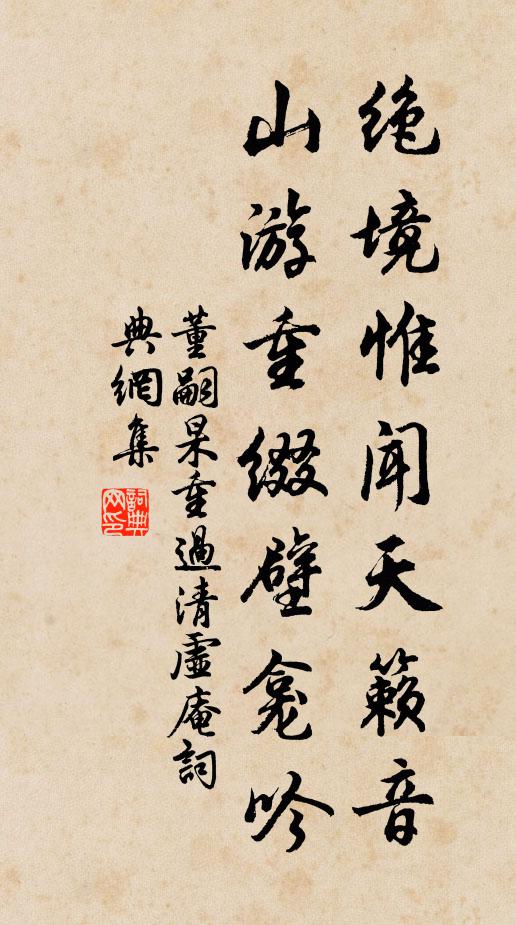 绝境惟闻天籁音
山游重缀壁龛吟
董嗣杲重過清虛庵詞
典網集
詞典
网印